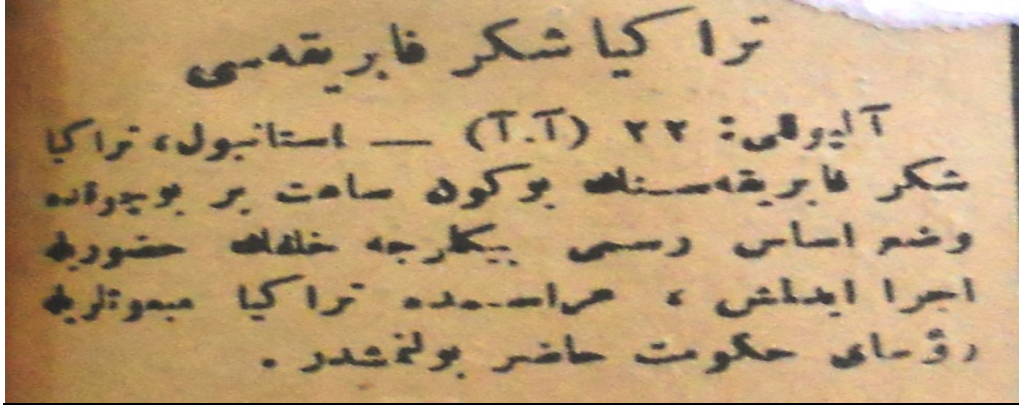 تراكيا شكر فابريقه‌سى
آلپوللى: ٢٢ (آ.آ) — استانبول، تراكيا
شكر فابريقه‌سنك بوكون ساعت بر بوچوقده
وضع اساس رسمى بيكلرجه خلقك حضوريله
اجرا ايدلمش، مراسمده تراكيا مبعوثلريله
رؤساى حكومت حاضر بولنمشدر.